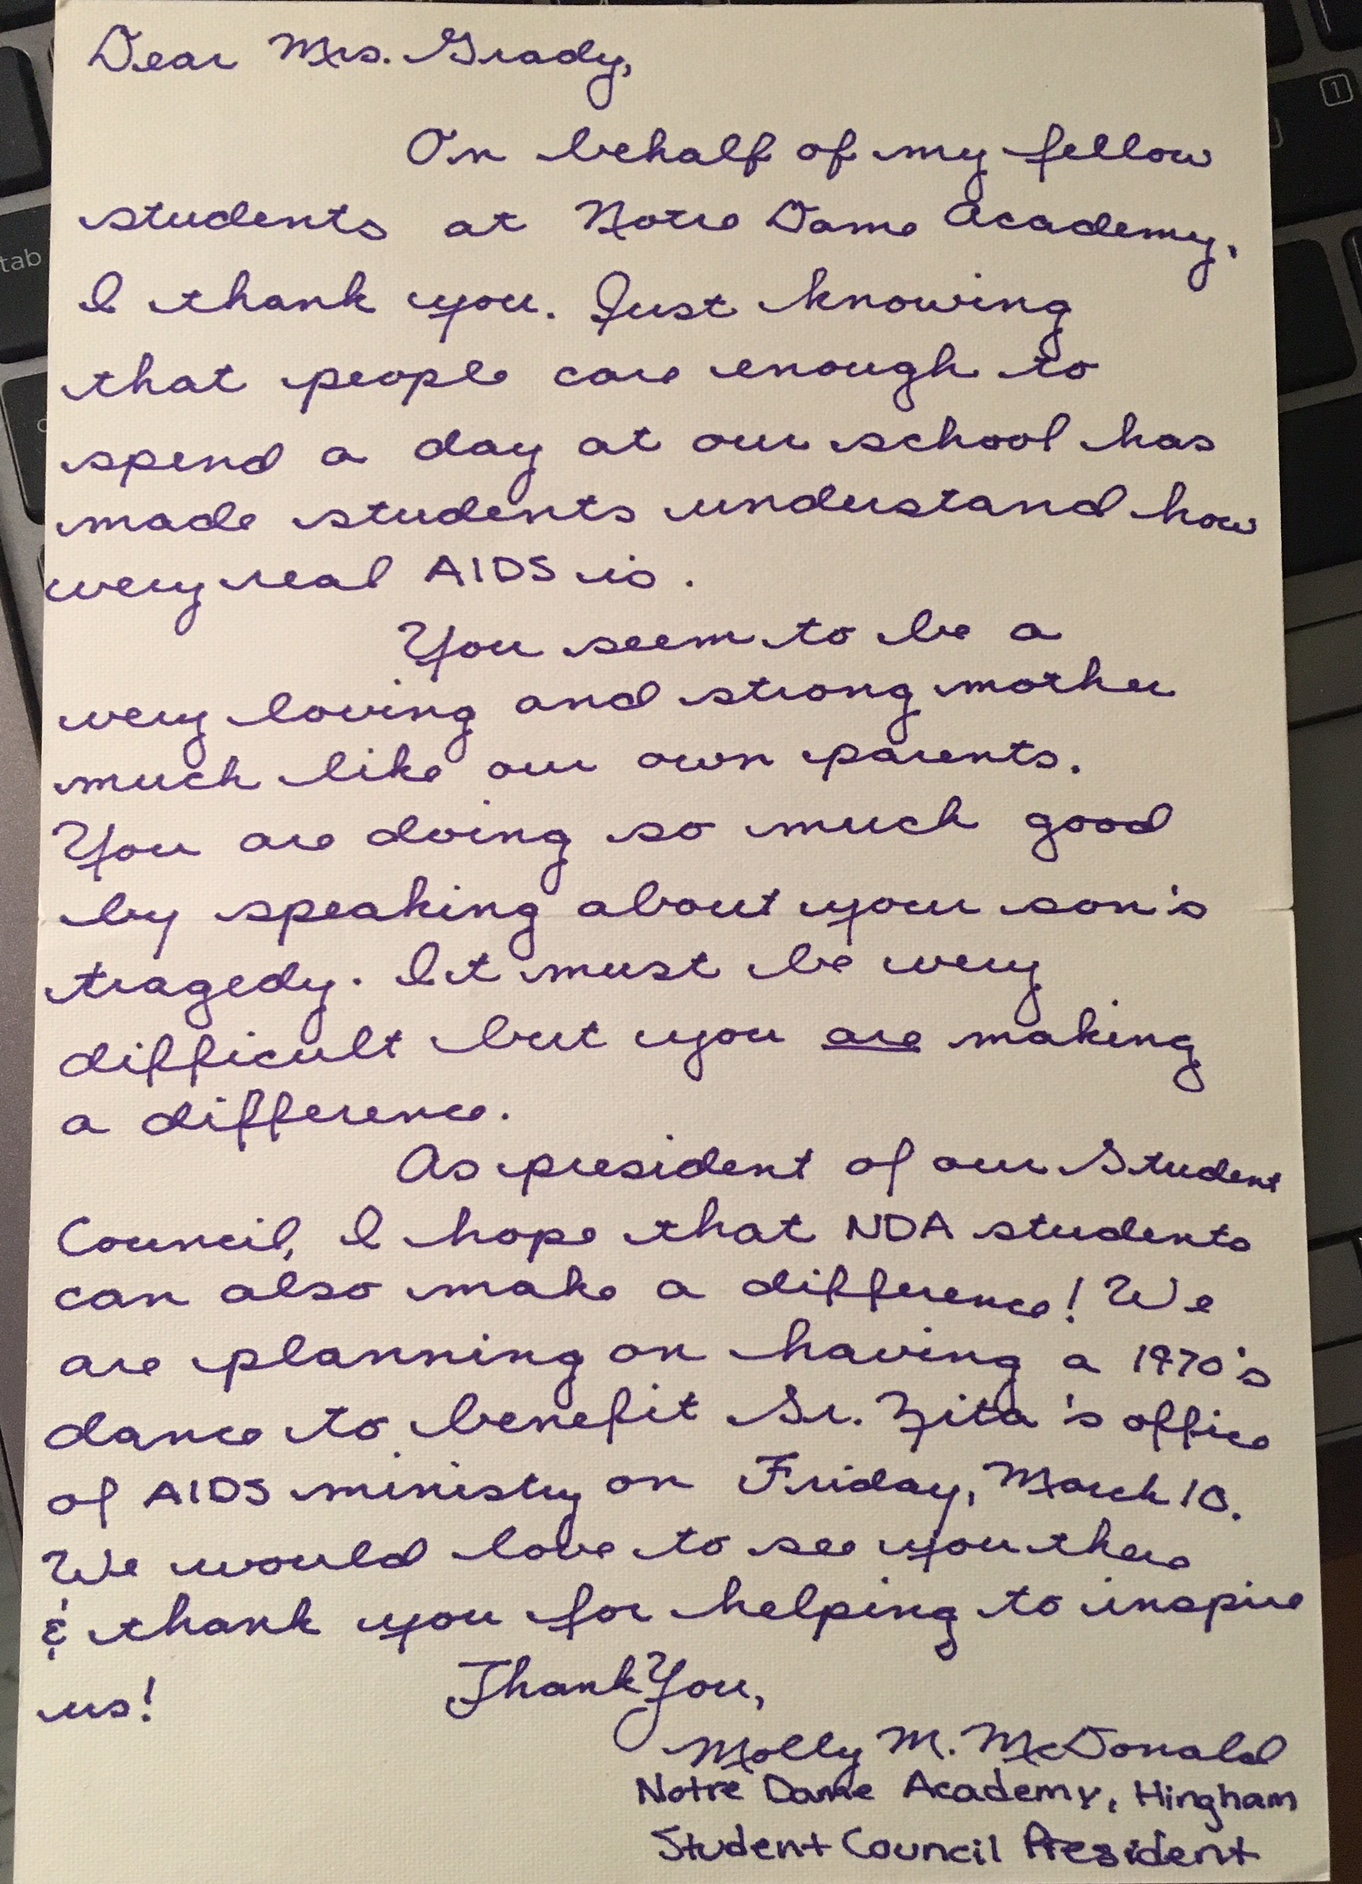 Dear Mrs. Grady,
On behalf of my fellow
students at Notre Dame Academy,
I thank you. Just knowing
that people care enough to
spend a day at our school has
made students understand how
very real AIDS is.
You seem to be a
very loving and strong mother
much like our own parents.
You are doing so much good
by speaking about your son's
tragedy. It must be very
difficult but you are making
a difference.
As president of our Student
Council, I hope that NDA students
can also make a difference! We
are planning on having a 1970's
dance to benefit Sr. Zita's office
of AIDS ministry on Friday, March 10.
We would love to see you there
& thank you for helping to inspire
us! Thank You,
Molly M. McDonald
Notre Dame Academy, Hingham
Student Council President
tab
1